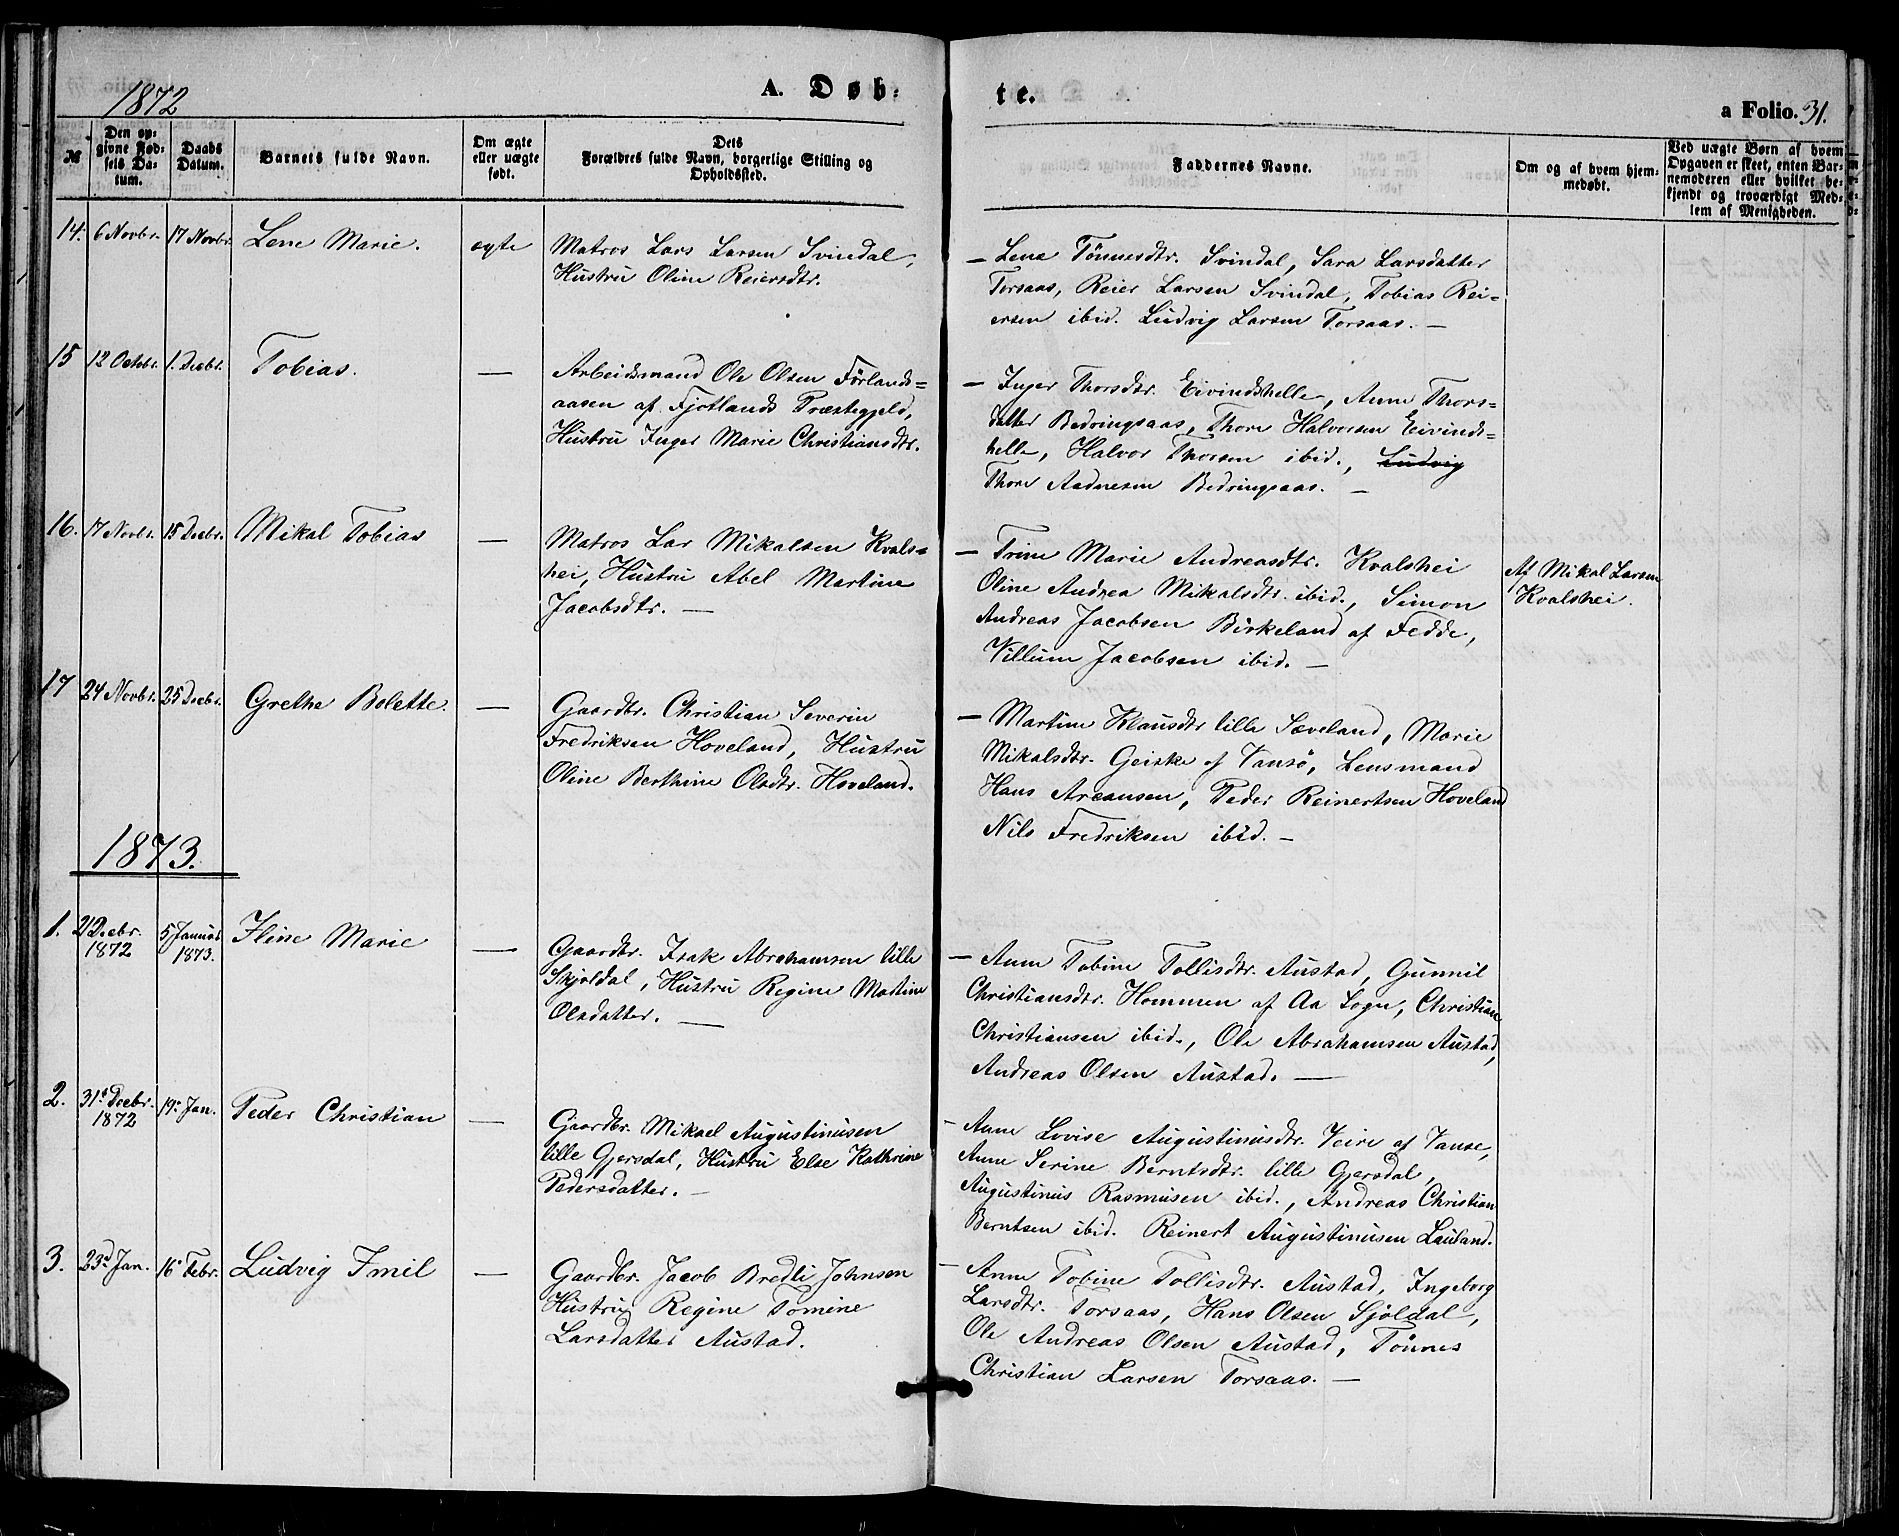 1872
A. Døb-
te.
a Folio. 31.
№
Den op-
givne Fød-
sels Da-
tum.
Daabs
Datum.
Barnets fulde Navn.
Om ægte
eller uægte
født.
Dets
Forældres fulde Navn, borgerlige Stilling og
Opholdssted.
Faddernes Navne.
Om og af hvem hjem-
medøbt.
Ved uægte Børn af hvem
Opgaven er skeet, enten Bar-
nemoderen eller hvilket be-
kjendt og troværdigt Med-
lem af Menigheden.
14. 6 Novbr. 17 Novbr. Lene Marie. ægte
Matros Lars Larsen Svindal,
Hustru Oline Reiersdtr.
— Lene Tønnesdtr. Svindal, Sara Larsdatter
Torsaas, Reier Larsen Svindal, Tobias Rei-
ersen ibid. Ludvig Larsen Torsaas. —
15 12 Octobr. 1. Decbr. Tobias. —
Arbeidsmand Ole Olsen Førlands-
aasen af Fjotlands Præstegjeld,
Hustru Inger Marie Christiansdtr.
— Inger Thorsdtr. Eivindshelle, Anne Thors-
datter Bedringsaas, Thore Halvorsen Eivinds-
helle, Halvor Thorsen ibid., Ludvig
Thore Aadnesen Bedringsaas. —
16. 17 Novbr. 15 Decbr. Mikal Tobias —
Matros Lar Mikalsen Kvals-
hei, Hustru Abel Martine
Jacobsdtr. —
— Trine Marie Andreasdtr. Kvalshei
Oline Andrea Mikalsdtr. ibid., Simon
Andreas Jacobsen Birkeland af Fedde,
Villum Jacobsen ibid. —
Af Mikal Larsen
Kvalshei.
17 24 Novbr. 25 Decbr. Grethe Bolette. —
Gaardbr. Christian Severin
Fredriksen Hoveland, Hustru
Oline Berthine Olsdtr. Hoveland.
— Martine Klausdtr lille Sæveland, Marie
Mikalsdtr. Geiske af Vansø, Lensmand
Hans Areansen, Peder Reinertsen Hoveland
Nils Fredriksen ibid. —
1873.
1. 2 Decbr. 1872 5 Januar 1873. Iline Marie —
Gaardbr. Isak Abrahamsen lille
Skjoldal, Hustru Regine Martine
Olsdatter. —
— Anne Tobine Tollisdtr. Austad, Gunnil
Christiansdtr. Hommen af Aa Sogn, Christian
Christiansen ibid., Ole Abrahamsen Austad,
Andreas Olsen Austad. —
2. 31. Decbr. 1872 19. Jan. Peder Christian —
Gaardbr. Mikael Augustinusen
lille Gjersdal, Hustru Else Kathrine
Pedersdatter. —
— Anne Lovise Augustinusdtr. Veire af Vanse,
Anne Serine Berntsdtr. lille Gjersdal,
Augustinus Rasmusen ibid., Andreas Christian
Berntsen ibid. Reinert Augustinusen Lauland.
3. 23d Jan. 16. Febr. Ludvig Imil —
Gaardbr. Jacob Bredli Johnsen
Hustru Regine Tomine
Larsdatter Austad.
— Anne Tobine Tollisdtr. Austad, Ingeborg
Larsdtr. Torsaas, Hans Olsen Sjoldal,
Ole Andreas Olsen Austad, Tønnes
Christian Larsen Torsaas. —